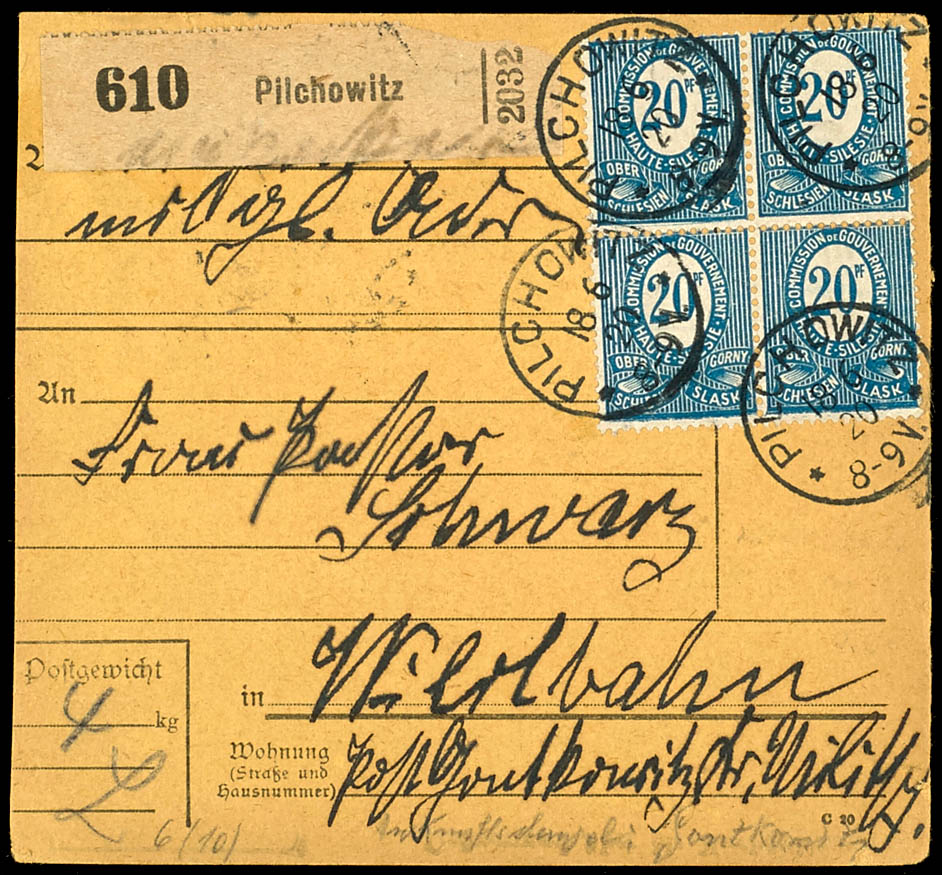 610 Pilchowitz 2032
COMMISSION DE GOUVERNEMENT · HAUTE-SILESIE · 20 PF OBER SCHLESIEN GORNY SLASK
COMMISSION DE GOUVERNEMENT · HAUTE-SILESIE · 20 PF OBER SCHLESIEN GORNY SLASK
PILCHOWITZ 18 6 20
PILCHOWITZ 18 6 20 8-9V.
COMMISSION DE GOUVERNEMENT · HAUTE-SILESIE · 20 PF OBER SCHLESIEN GORNY SLASK
COMMISSION DE GOUVERNEMENT · HAUTE-SILESIE · 20 PF OBER SCHLESIEN GORNY SLASK
PILCHOWITZ 18 6 20
PILCHOWITZ 18 6 20 8-9V.
An
Frau Pastor
Schwarz
Postgewicht
4 kg
in Wildbahn
Wohnung
(Straße und
Hausnummer)
Post Gontkowitz Kr. Militsch
C 20
6/10/
Gontkowitz